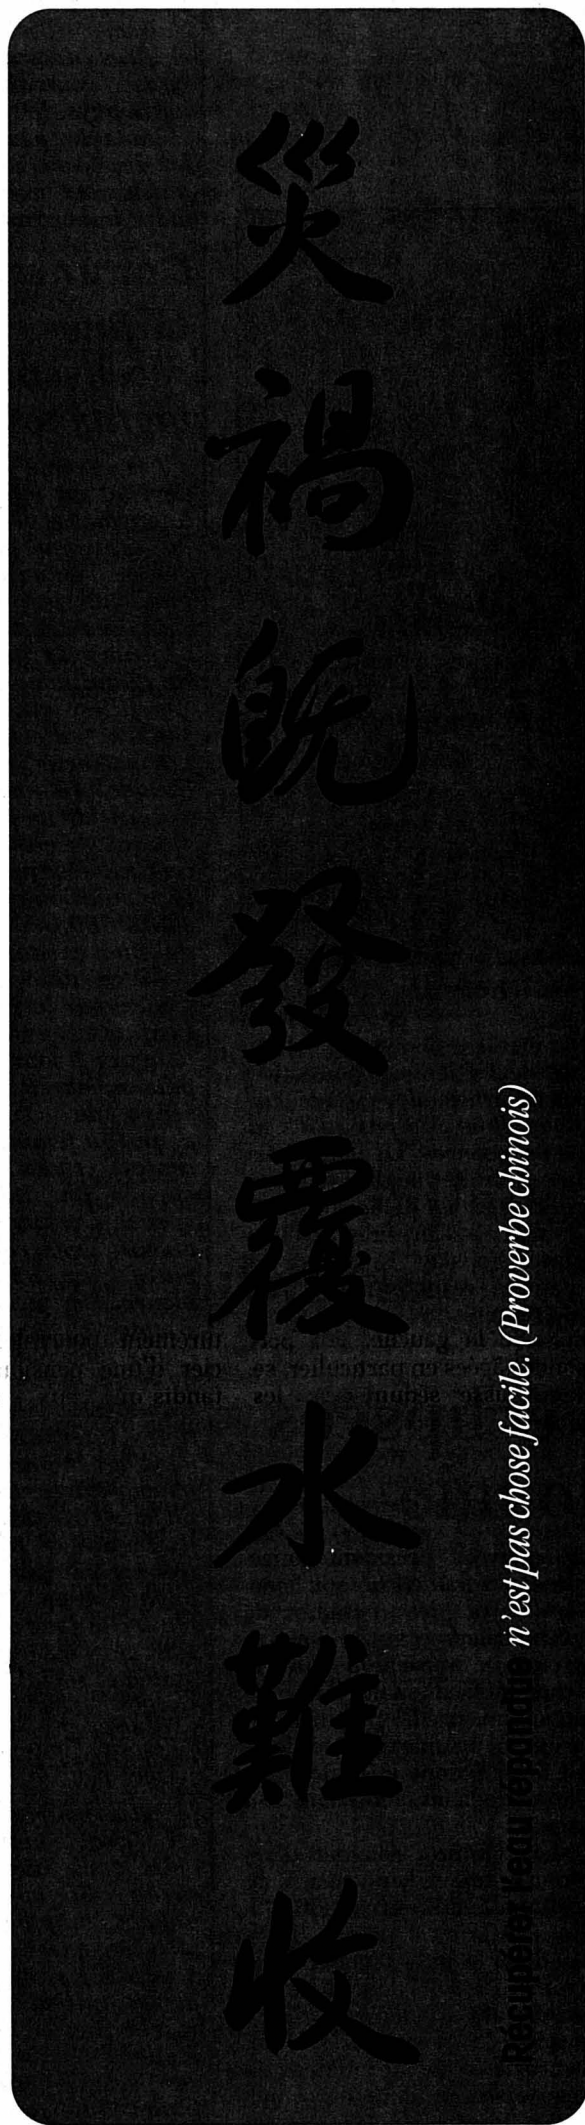 災禍既發覆水難收
Récupérer l'eau répandue n'est pas chose facile. (Proverbe chinois)